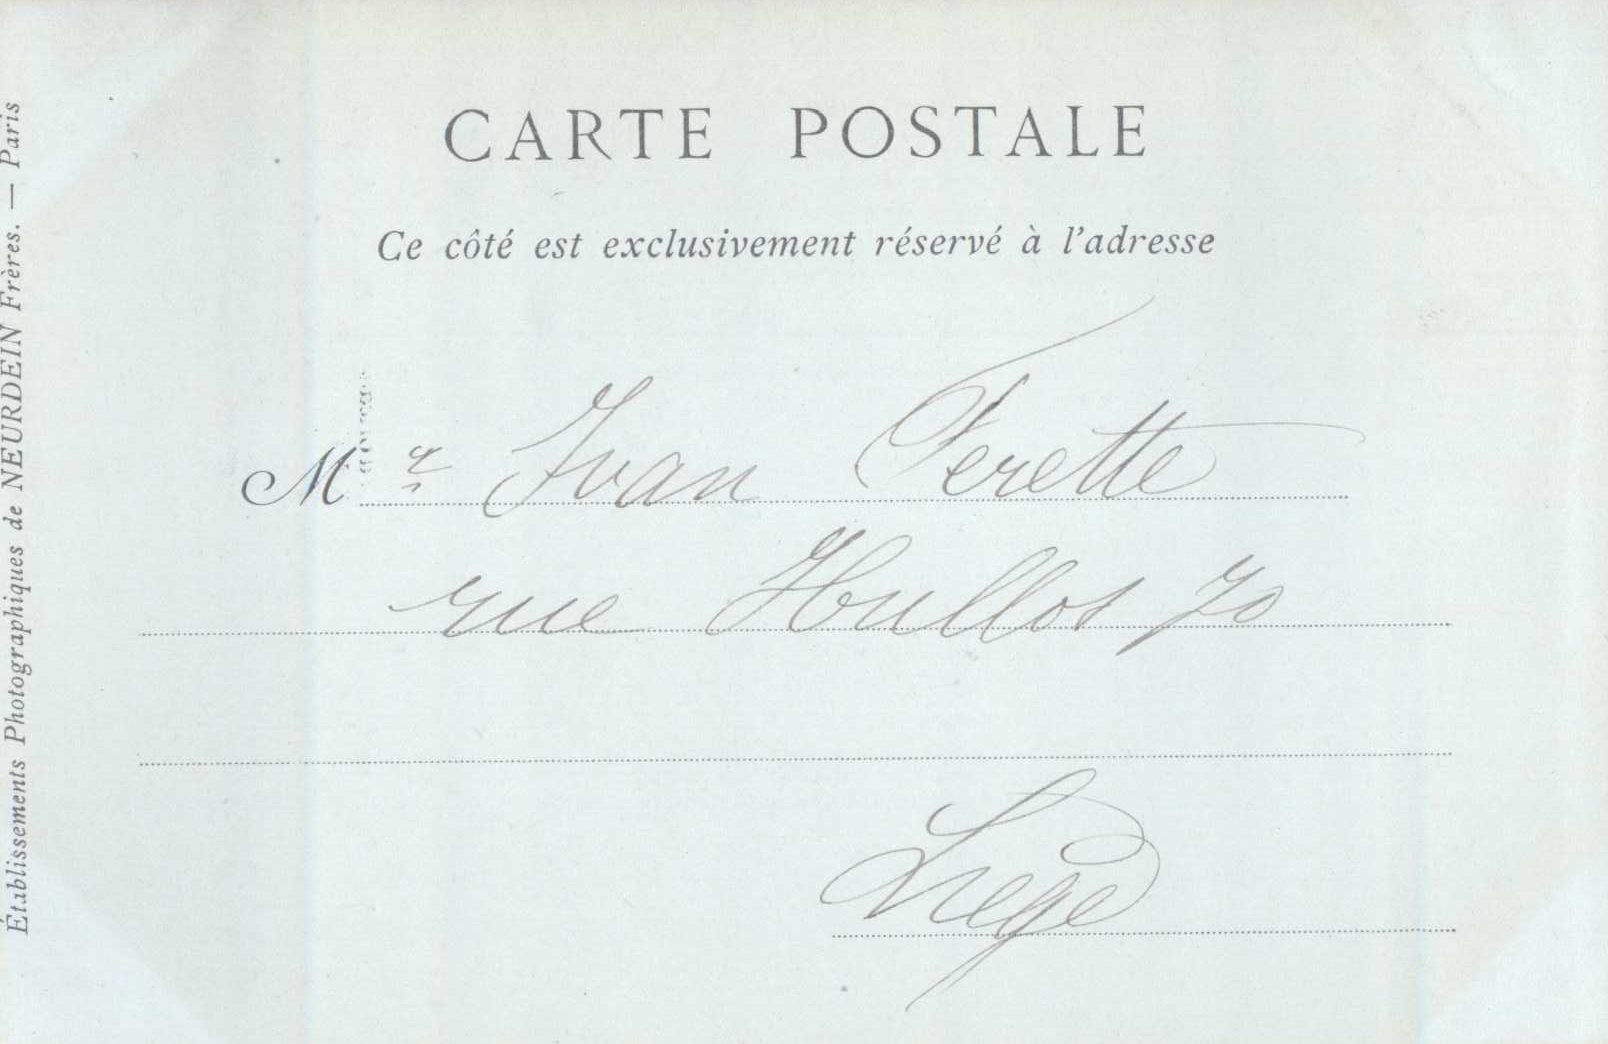 CARTE POSTALE
Ce côté est exclusivement réservé à l'adresse
Mr Ivan Ferette
rue Hullos 70
Liege
Établissements Photographiques de NEURDEIN Frères. — Paris